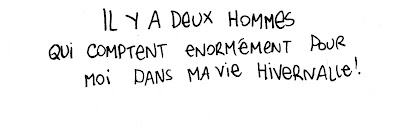 IL Y A DEUX HOMMES
QUI COMPTENT ENORMÉMENT POUR
MOI DANS MA VIE HIVERNALLE!